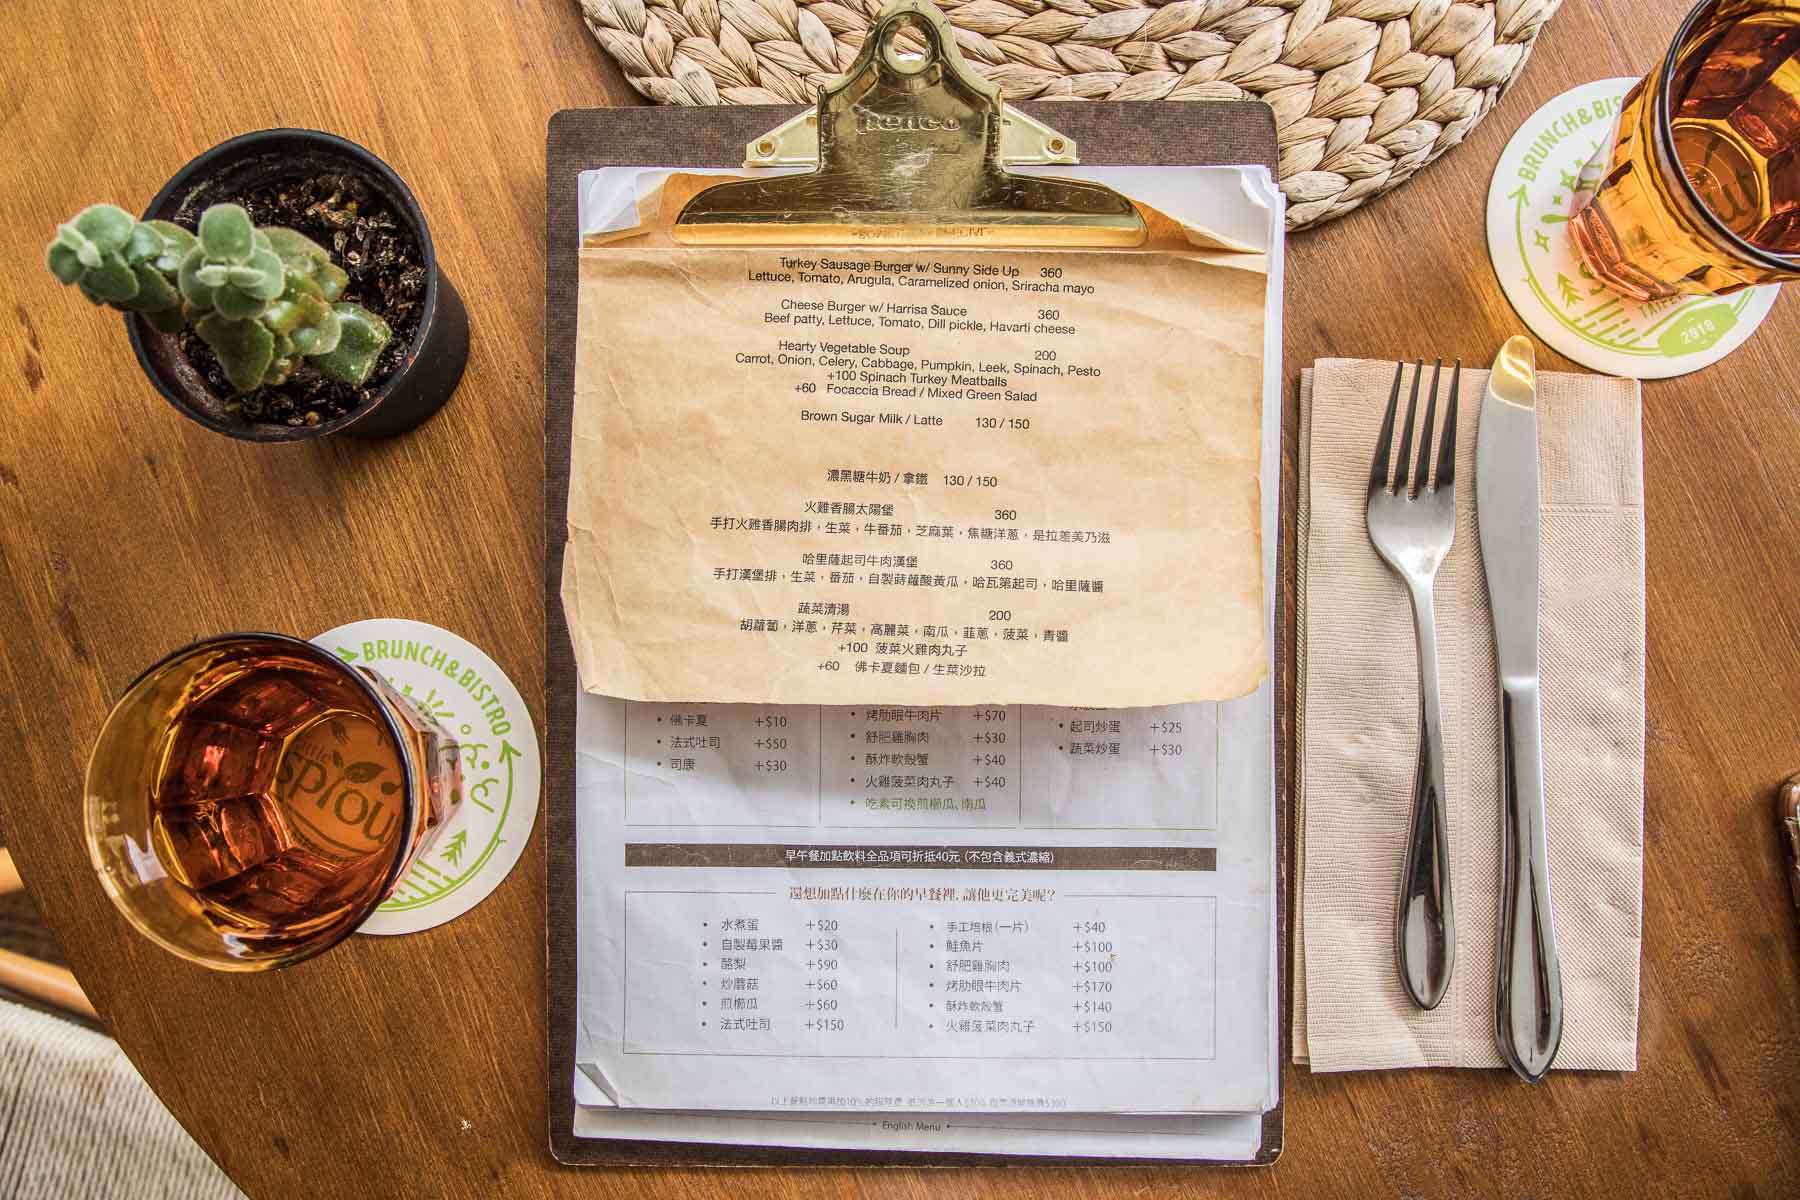 penco
Turkey Sausage Burger w/ Sunny Side Up 360
Lettuce, Tomato, Arugula, Caramelized onion, Sriracha mayo
Cheese Burger w/ Harrisa Sauce 360
Beef patty, Lettuce, Tomato, Dill pickle, Havarti cheese
Hearty Vegetable Soup 200
Carrot, Onion, Celery, Cabbage, Pumpkin, Leek, Spinach, Pesto
+100 Spinach Turkey Meatballs
+60 Focaccia Bread / Mixed Green Salad
Brown Sugar Milk / Latte 130 / 150
濃黑糖牛奶 / 拿鐵 130 / 150
火雞香腸太陽堡 360
手打火雞香腸肉排，生菜，牛番茄，芝麻葉，焦糖洋蔥，是拉差美乃滋
哈里薩起司牛肉漢堡 360
手打漢堡排，生菜，番茄，自製蒔蘿酸黃瓜，哈瓦第起司，哈里薩醬
蔬菜清湯 200
胡蘿蔔，洋蔥，芹菜，高麗菜，南瓜，韮蔥，菠菜，青醬
+100 菠菜火雞肉丸子
+60 佛卡夏麵包 / 生菜沙拉
• 佛卡夏 +$10
• 法式吐司 +$50
• 司康 +$30
• 烤肋眼牛肉片 +$70
• 舒肥雞胸肉 +$30
• 酥炸軟殼蟹 +$40
• 火雞菠菜肉丸子 +$40
• 吃素可換煎櫛瓜、南瓜
• 起司炒蛋 +$25
• 蔬菜炒蛋 +$30
早午餐加點飲料全品項可折抵40元 (不包含義式濃縮)
還想加點什麼在你的早餐裡, 讓他更完美呢?
• 水煮蛋 +$20
• 自製莓果醬 +$30
• 酪梨 +$90
• 炒蘑菇 +$60
• 煎櫛瓜 +$60
• 法式吐司 +$150
• 手工培根(一片) +$40
• 鮭魚片 +$100
• 舒肥雞胸肉 +$100
• 烤肋眼牛肉片 +$170
• 酥炸軟殼蟹 +$140
• 火雞菠菜肉丸子 +$150
• English Menu •
BRUNCH&BISTRO
sprou
BRUNCH&BISTRO
2010